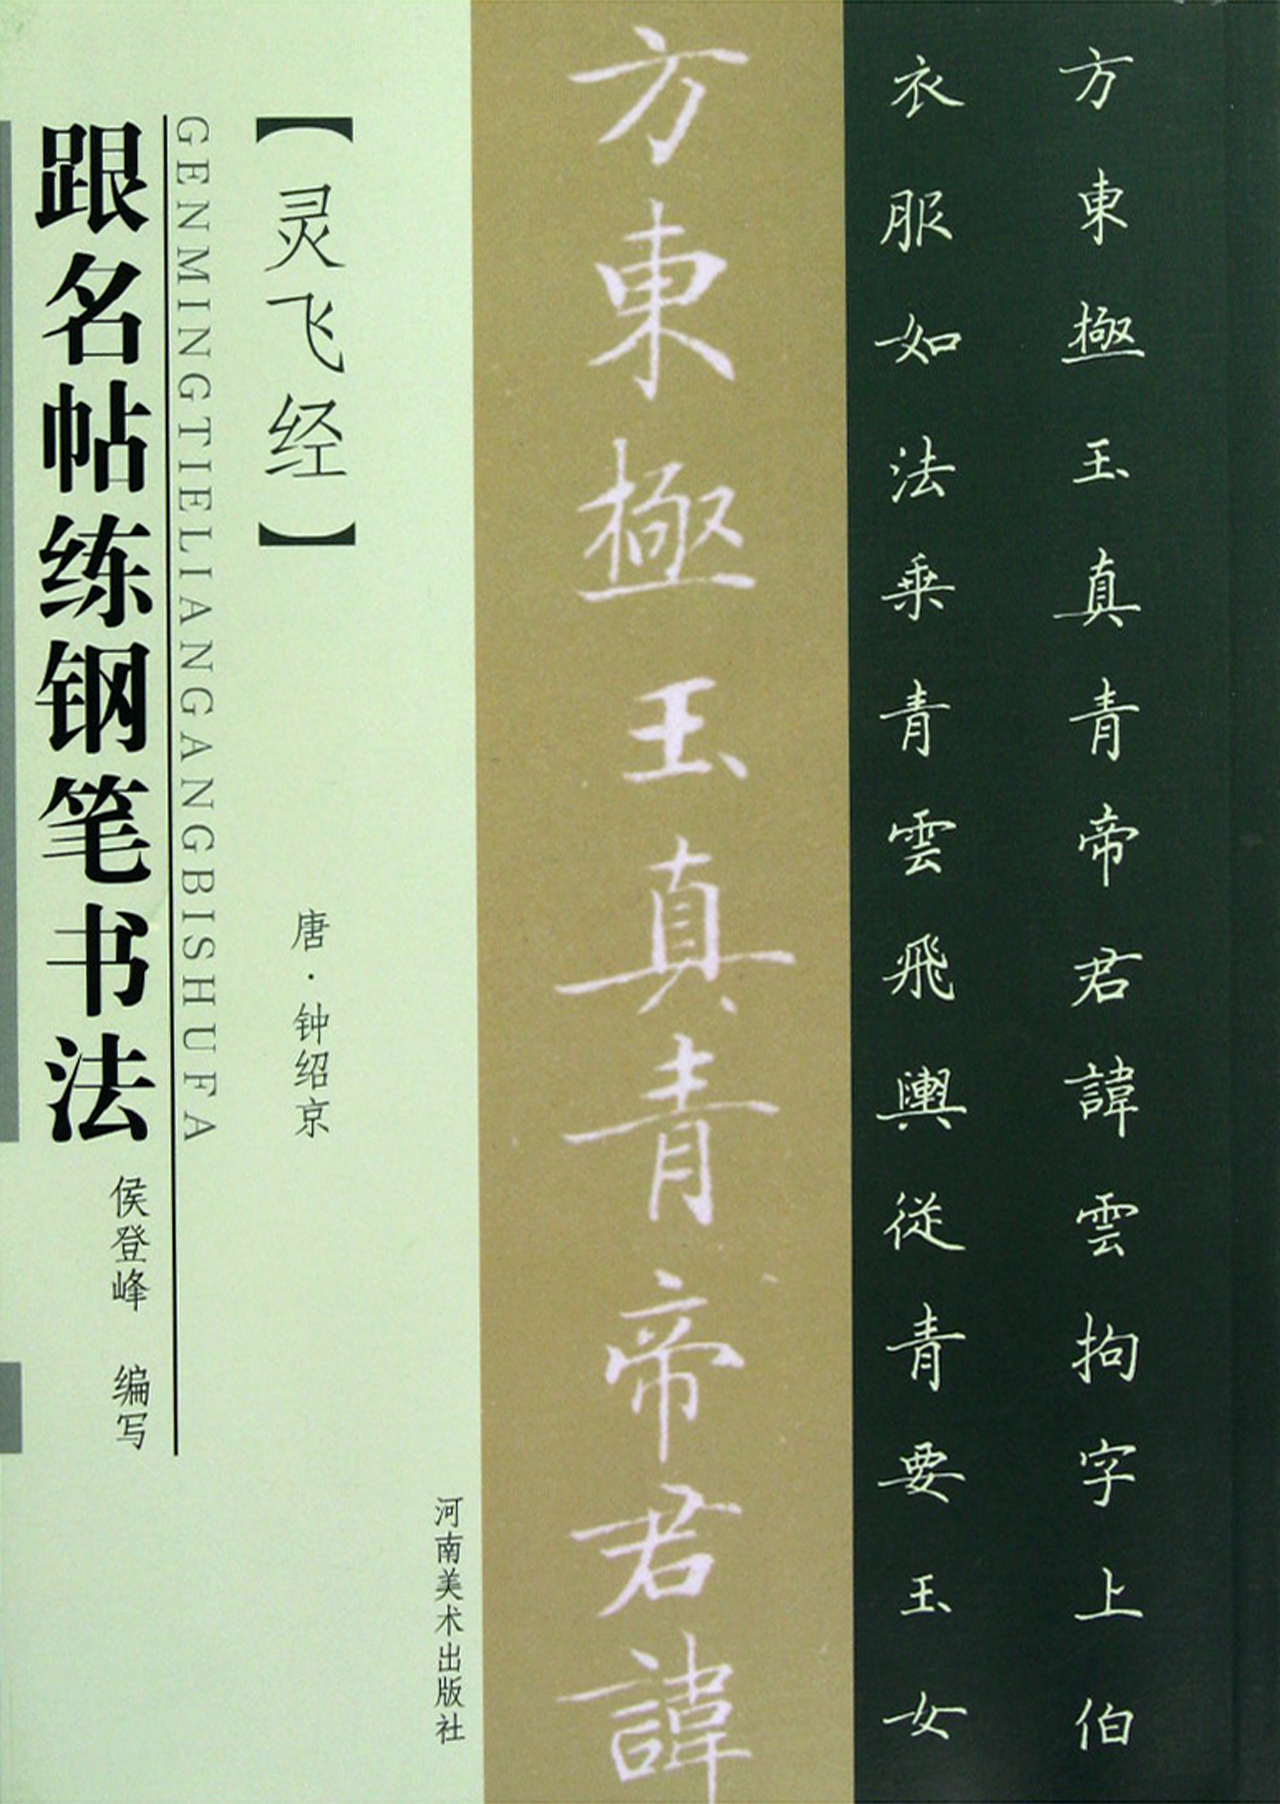 方東極玉真青帝君諱雲拘字上伯
衣服如法乗青雲飛輿從青要玉女
方東極玉真青帝君諱
【灵飞经】
唐·钟绍京
河南美术出版社
GENMINGTIELIANGANGBISHUFA
跟名帖练钢笔书法
侯登峰 编写